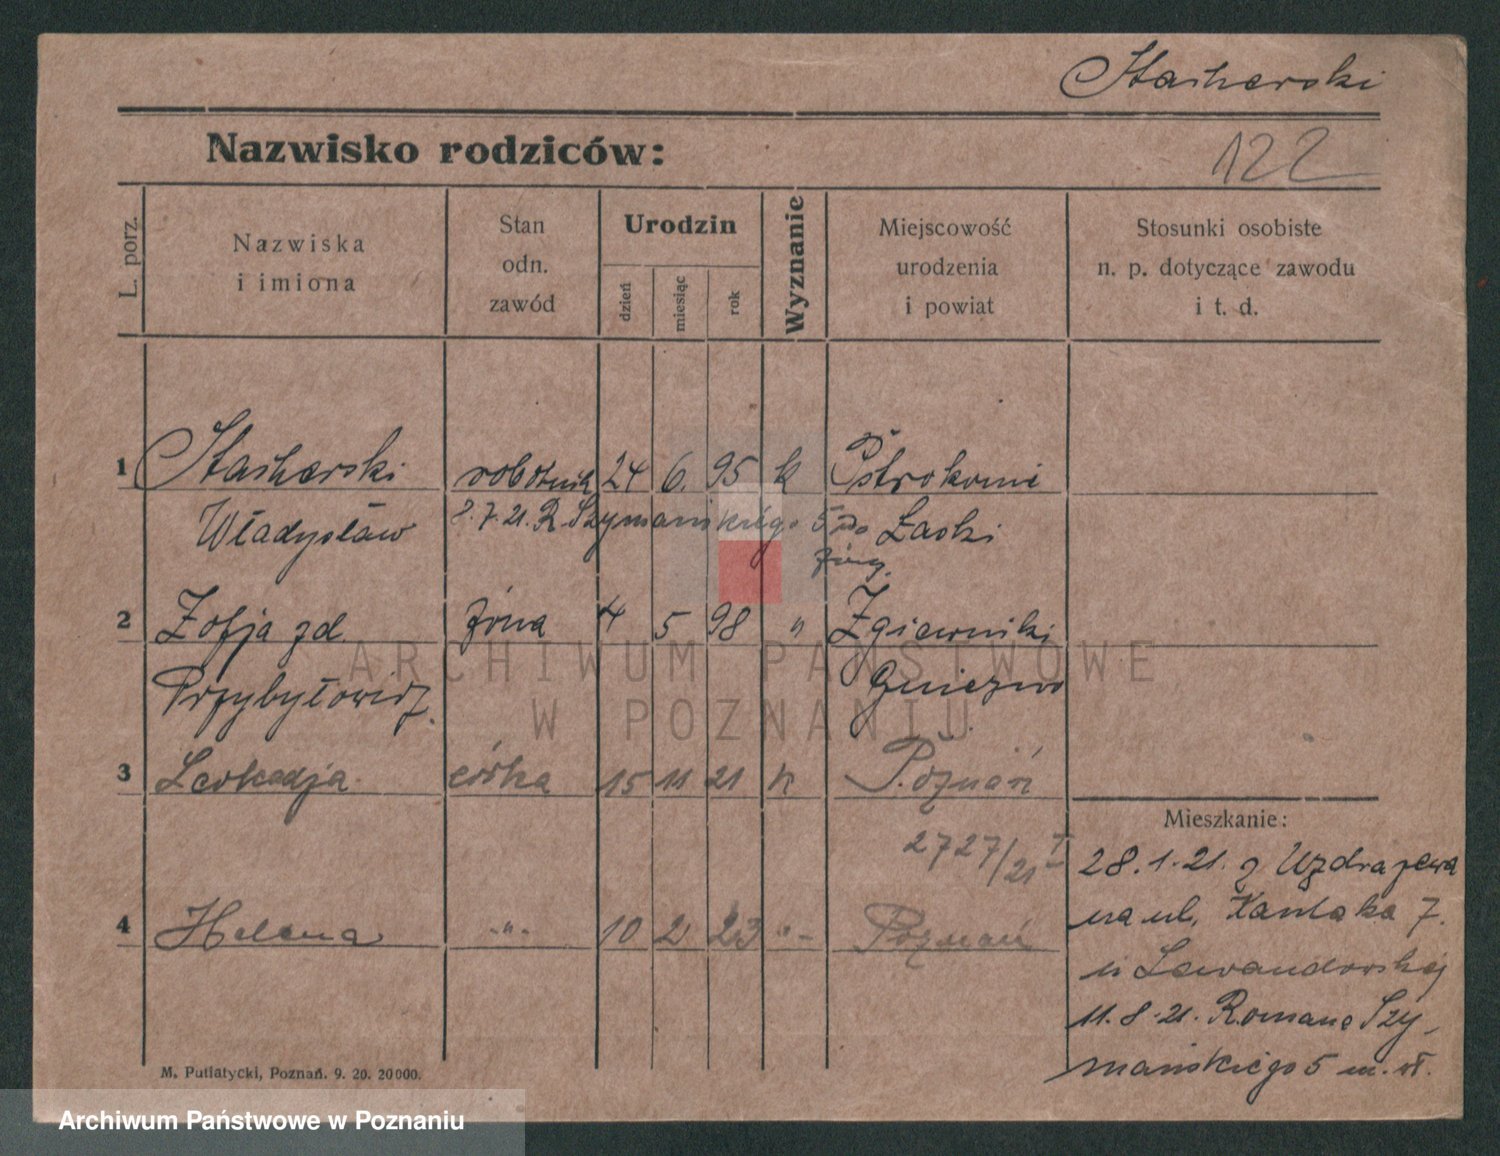 Nazwisko rodziców:
122
L. porz.
Nazwiska
i imiona
Stan
odn.
zawód
Urodzin
dzień
miesiąc
rok
Wyznanie
Miejscowość
urodzenia
i powiat
Stosunki osobiste
n. p. dotyczące zawodu
i t. d.
1 robotnik 24 6. 95 k
Władysław 8.7.21. R. Szymańskiego 5 Łaski
2 Zofja zd żona 4 5 98 "
Przybyłowicz. Gniezno
3 Leokadja córka 15 11 21 k Poznań
2727/21 I
4 Helena -"- 10 2 23 "- Poznań
Mieszkanie:
28.1.21. z
na ul. Kantaka 7.
u Lewandowskiej
11.8.21. Romana Szy-
mańskiego 5 m. wł.
M. Putiatycki, Poznań. 9. 20. 20000.
ARCHIWUM PAŃSTWOWE
W POZNANIU
Archiwum Państwowe w Poznaniu